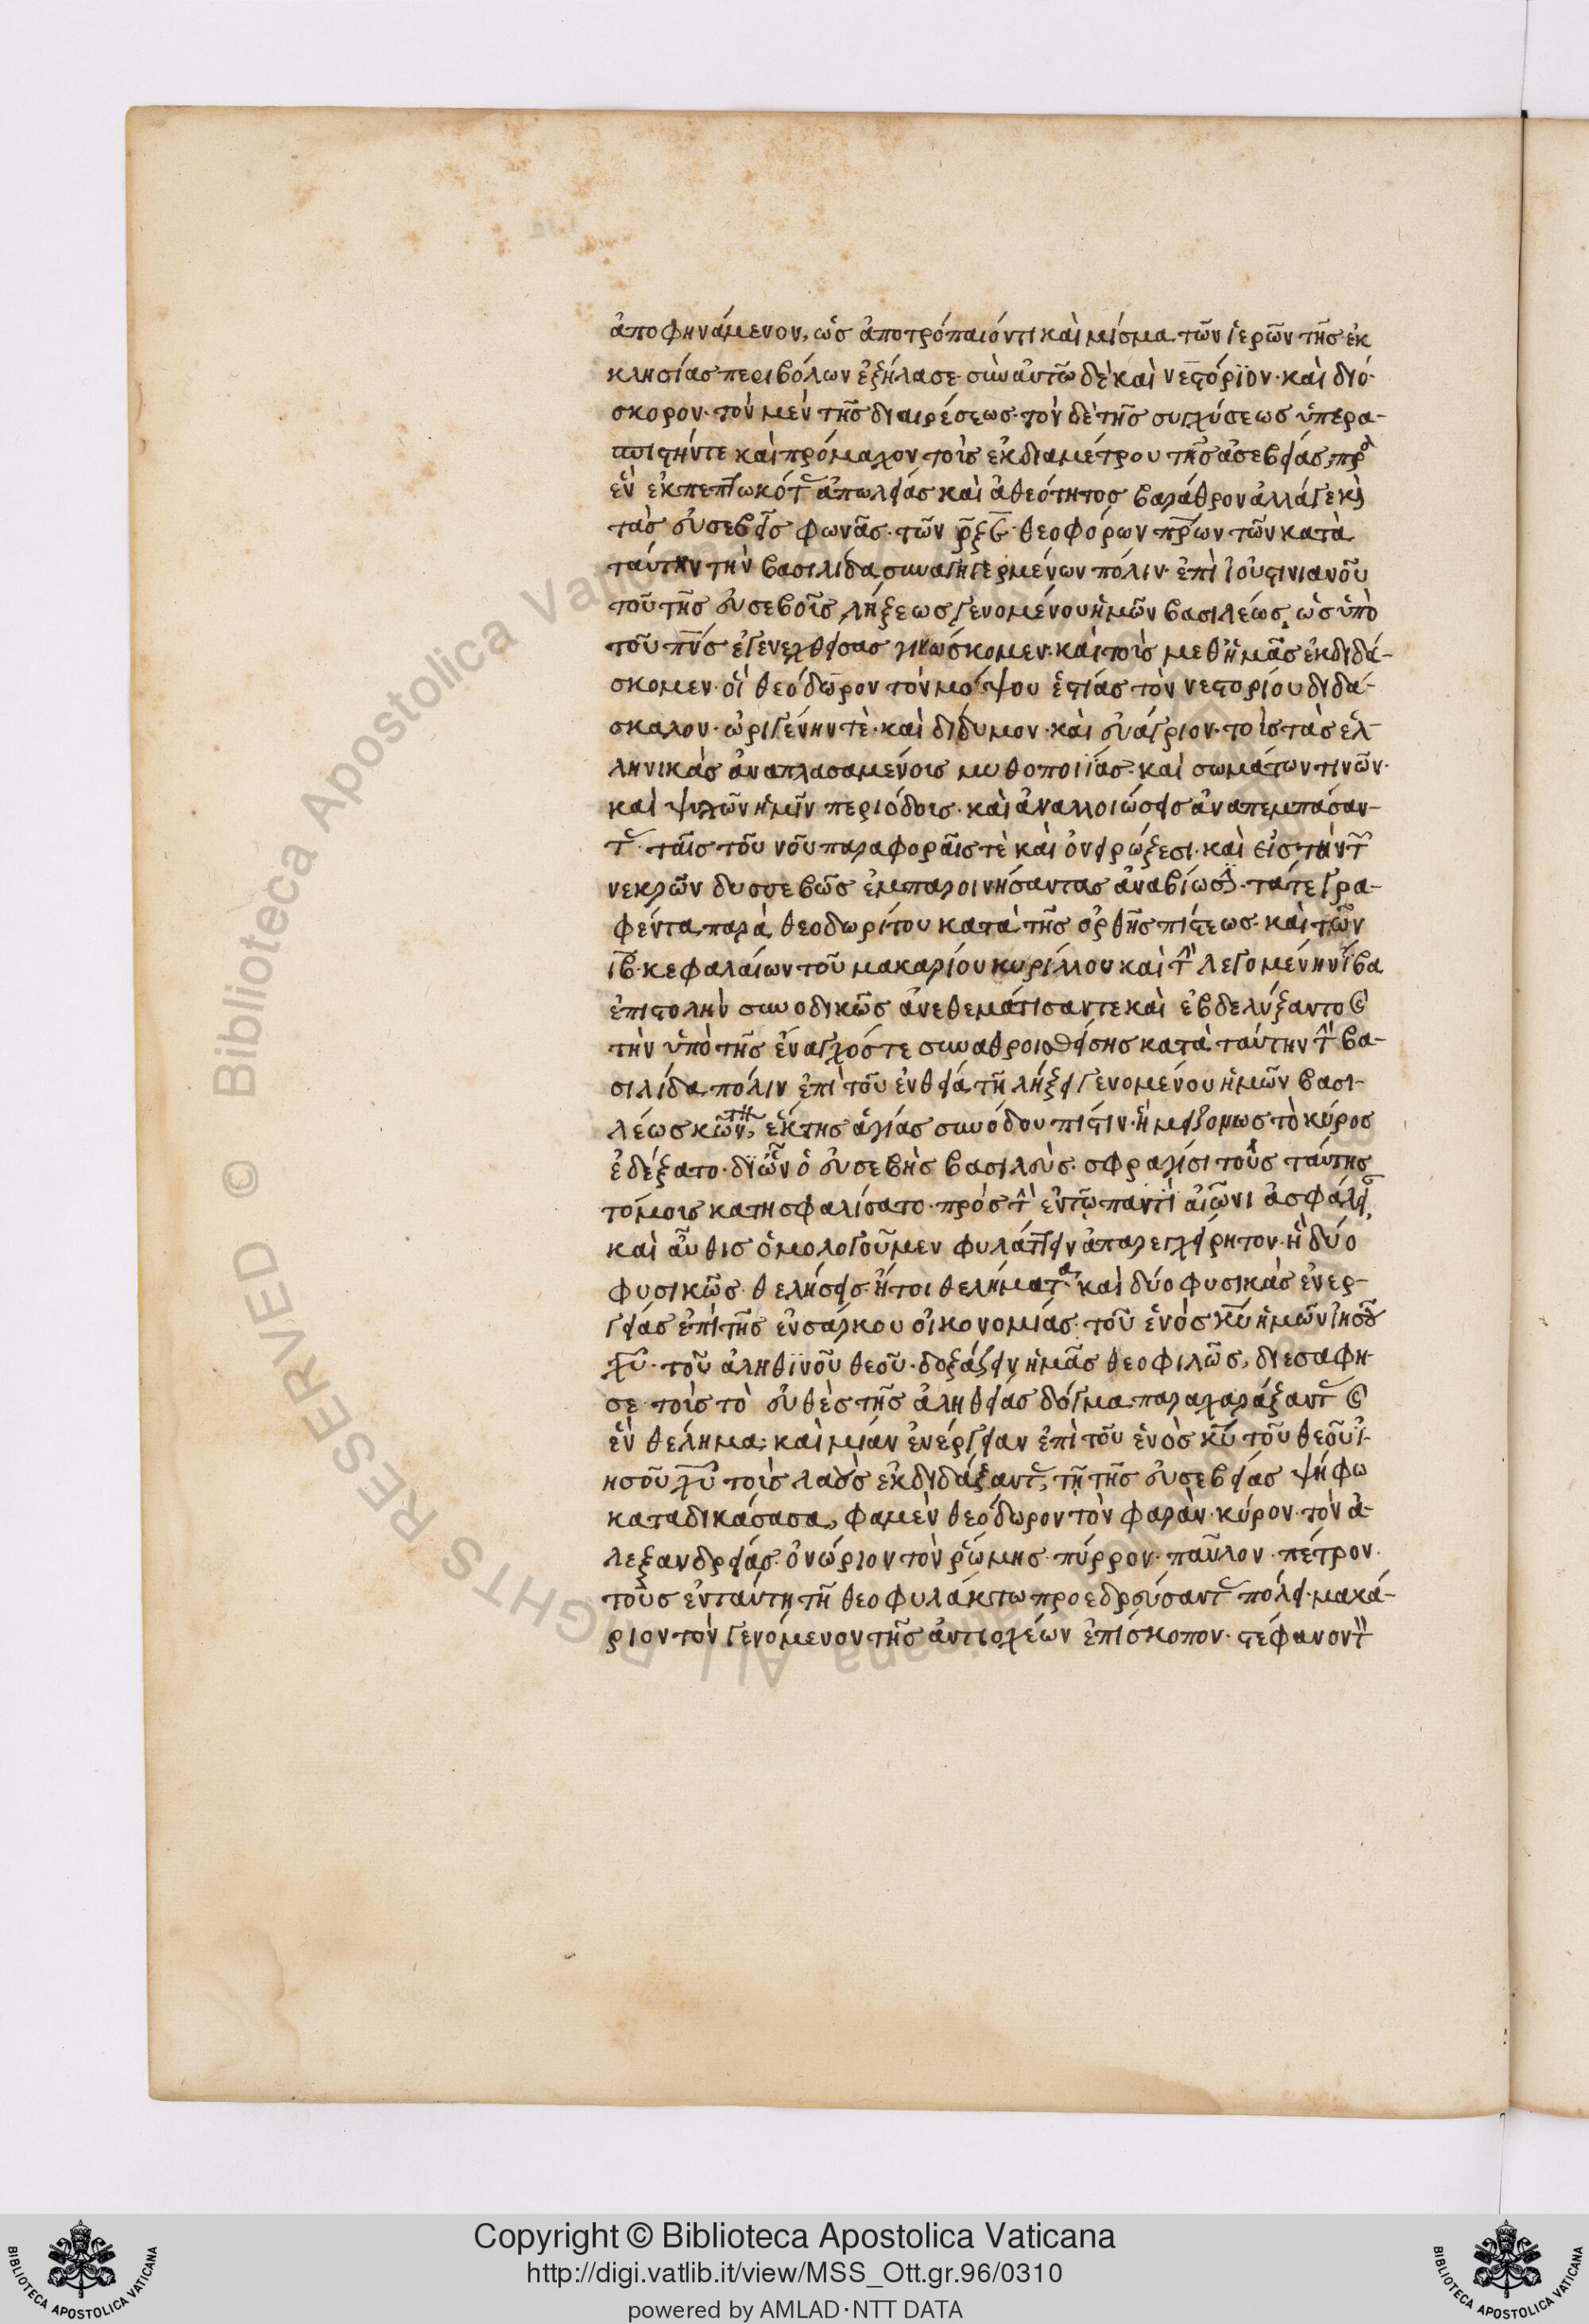 ἀποφηνάμενον, ὡς ἀποτρόπαιόν τι καὶ μίσμα τῶν ἱερῶν τῆς ἐκ
κλησίας περιβόλων ἐξήλασε· σὺν αὐτῶ δὲ καὶ νεστόριον· καὶ διό·
σκορον· τὸν μὲν τῆς διαιρέσεως· τὸν δὲ τῆς συγχύσεως ὑπερα-
σπιστήν τε καὶ πρόμαχον τοῖς ἐκ διαμέτρου τῆς ἀσεβείας πρὸ
ἓν ἐκπεπτωκότας ἀπωλείας καὶ ἀθεότητος βάραθρον ἀλλά γε καὶ
τὰς εὐσεβεῖς φωνὰς· τῶν ρξε θεοφόρων πρων τῶν κατὰ
ταύτην τὴν βασιλίδα συναγηγερμένων πόλιν· ἐπὶ ἰουστινιανοῦ
τοῦ τῆς εὐσεβοῖς λήξεως γενομένου ἡμῶν βασιλέως, ὡς ὑπὸ
τοῦ πνς ἐγενεχθείσας γινώσκομεν· καὶ τοῖς μεθ' ἡμᾶς ἐκδιδά-
σκομεν· οἳ θεόδωρον τὸν μόψου ἑστίας τὸν νεστορίου διδά-
σκαλον· ὠριγένην τὲ· καὶ δίδυμον· καὶ εὐάγριον· τοῖς τὰς ἑλ-
ληνικὰς ἀναπλασαμένοις μυθοποιΐας· καὶ σωμάτων τινῶν·
καὶ ψυχῶν ἡμῖν περιόδοις· καὶ ἀναλλοιώσεις ἀναπεμπάσαν-
τας· ταῖς τοῦ νοῦ παραφοραῖς τὲ καὶ ὀνειρώξεσι· καὶ εἰς τὴν τῶν
νεκρῶν δυσσεβῶς ἐμπαροινήσαντας ἀναβίωσιν· τά τε γρα-
φέντα παρὰ θεοδωρίτου κατὰ τῆς ὀρθῆς πίστεως· καὶ τῶν
ιβ κεφαλαίων τοῦ μακαρίου κυρίλλου καὶ τὴν λεγομένην ἴβα
ἐπιστολὴν συνοδικῶς ἀνεθεμάτισαν τε καὶ ἐβδελύξαντο καὶ
τὴν ὑπὸ τῆς ἔναγχός τε συναθροισθείσης κατὰ ταύτην τὴν βα-
σιλίδα πόλιν ἐπὶ τοῦ ἐν θεία τῆ λήξει γενομένου ἡμῶν βασι-
λέως κων, ἕκτης ἁγίας συνόδου πίστιν· ἣ μειζόνως τὸ κύρος
ἐδέξατο· δι' ὧν ὁ εὐσεβὴς βασιλεὺς· σφραγίσι τοὺς ταύτης
τόμοις κατησφαλίσατο· πρὸς τὴν ἐν τῷ παντὶ αἰῶνι ἀσφάλειαν,
καὶ αὖθις ὁμολογοῦμεν φυλάττειν ἀπαρεγχείρητον· ἣ δύο
φυσικῶς· θελήσεις· ἤτοι θελήματα καὶ δύο φυσικὰς ἐνερ-
γείας ἐπὶ τῆς ἐνσάρκου οἰκονομίας· τοῦ ἑνὸς κυ ἡμῶν ἰησοῦ
χυ· τοῦ ἀληθινοῦ θεοῦ· δοξάζειν ἡμᾶς θεοφιλῶς, διεσάφη-
σε· τοῖς τὸ εὐθὲς τῆς ἀληθείας δόγμα παραχαράξαντας καὶ
ἓν θέλημα· καὶ μίαν ἐνέργειαν ἐπὶ τοῦ ἑνὸς κυ τοῦ θεοῦ ἰ-
ησοῦ χυ τοῖς λαοῖς ἐκδιδάξαντας, τῇ τῆς εὐσεβείας ψήφω
καταδικάσασα, φαμὲν θεόδωρον τὸν φαρὰν· κύρον· τὸν ἀ-
λεξανδρείας· ὀνώριον τὸν ῥώμης· πύρρον· παῦλον· πέτρον·
τοὺς ἐν ταύτη τῆ θεοφυλάκτω προεδρεύσαντας πόλει· μακά-
ριον τὸν γενόμενον τῆς ἀντιοχέων ἐπίσκοπον· στέφανον τὸν
Copyright © Biblioteca Apostolica Vaticana
http://digi.vatlib.it/view/MSS_Ott.gr.96/0310
powered by AMLAD·NTT DATA